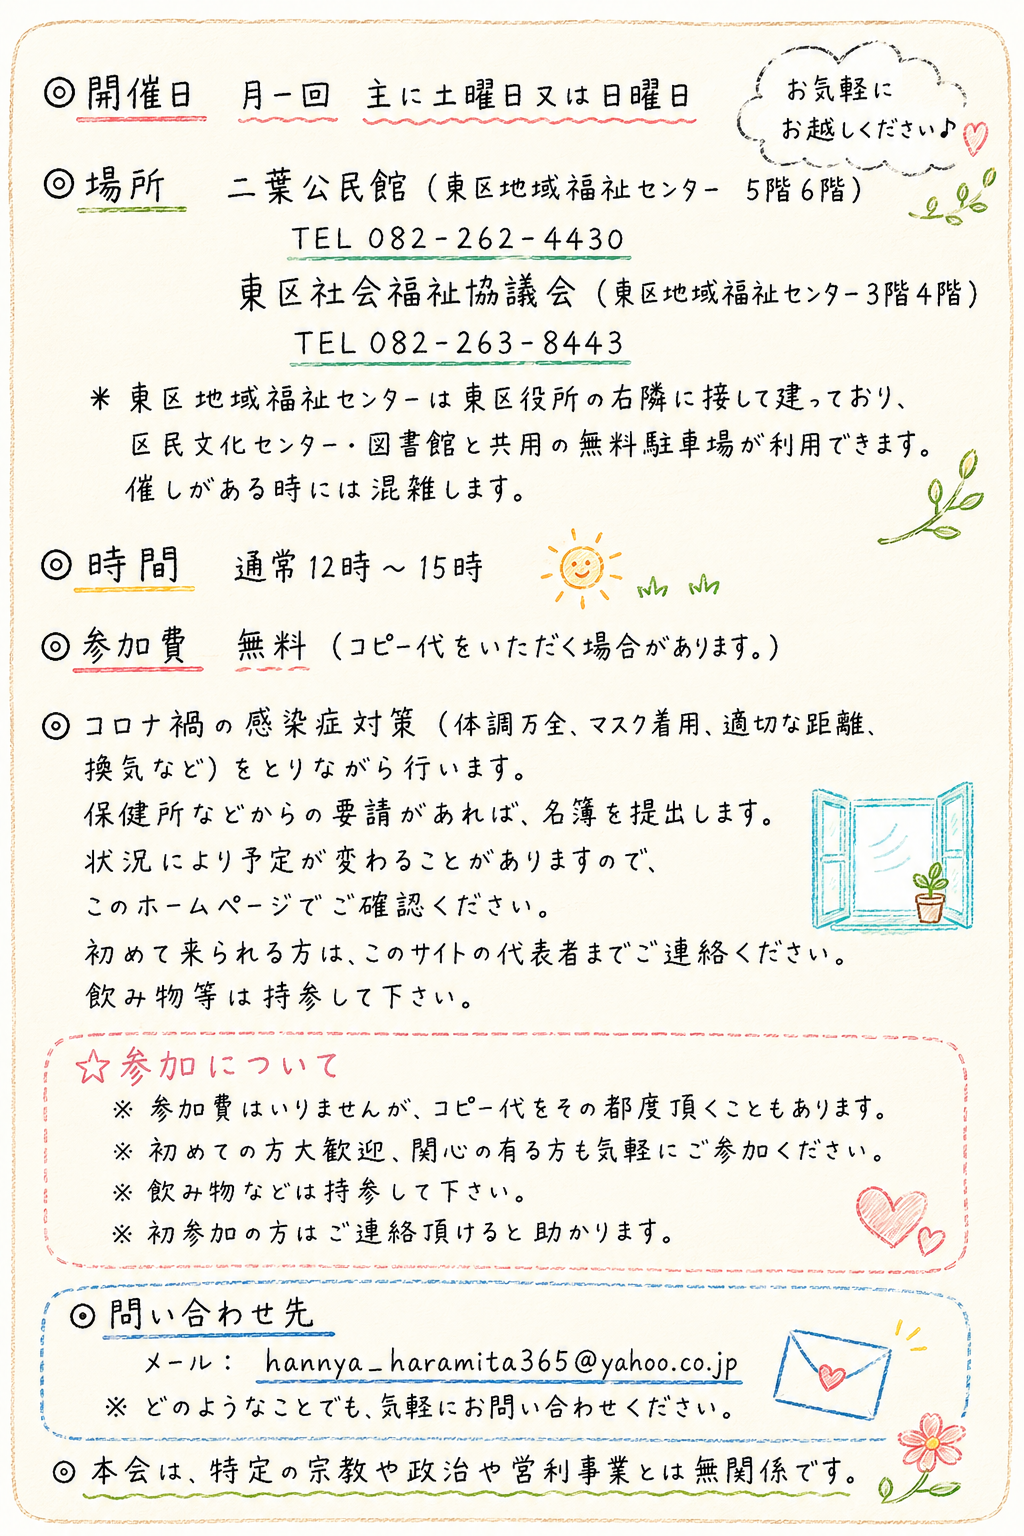 ◎開催日　月一回　主に土曜日又は日曜日
お気軽に
お越しください♪
◎場所　二葉公民館（東区地域福祉センター　5階6階）
TEL 082-262-4430
東区社会福祉協議会（東区地域福祉センター3階4階）
TEL 082-263-8443
＊東区地域福祉センターは東区役所の右隣に接して建っており、
区民文化センター・図書館と共用の無料駐車場が利用できます。
催しがある時には混雑します。
◎時間　通常12時～15時
◎参加費　無料（コピー代をいただく場合があります。）
◎コロナ禍の感染症対策（体調万全、マスク着用、適切な距離、
換気など）をとりながら行います。
保健所などからの要請があれば、名簿を提出します。
状況により予定が変わることがありますので、
このホームページでご確認ください。
初めて来られる方は、このサイトの代表者までご連絡ください。
飲み物等は持参して下さい。
☆参加について
※ 参加費はいりませんが、コピー代をその都度頂くこともあります。
※ 初めての方大歓迎、関心の有る方も気軽にご参加ください。
※ 飲み物などは持参して下さい。
※ 初参加の方はご連絡頂けると助かります。
◎問い合わせ先
メール： hannya_haramita365@yahoo.co.jp
※ どのようなことでも、気軽にお問い合わせください。
◎本会は、特定の宗教や政治や営利事業とは無関係です。